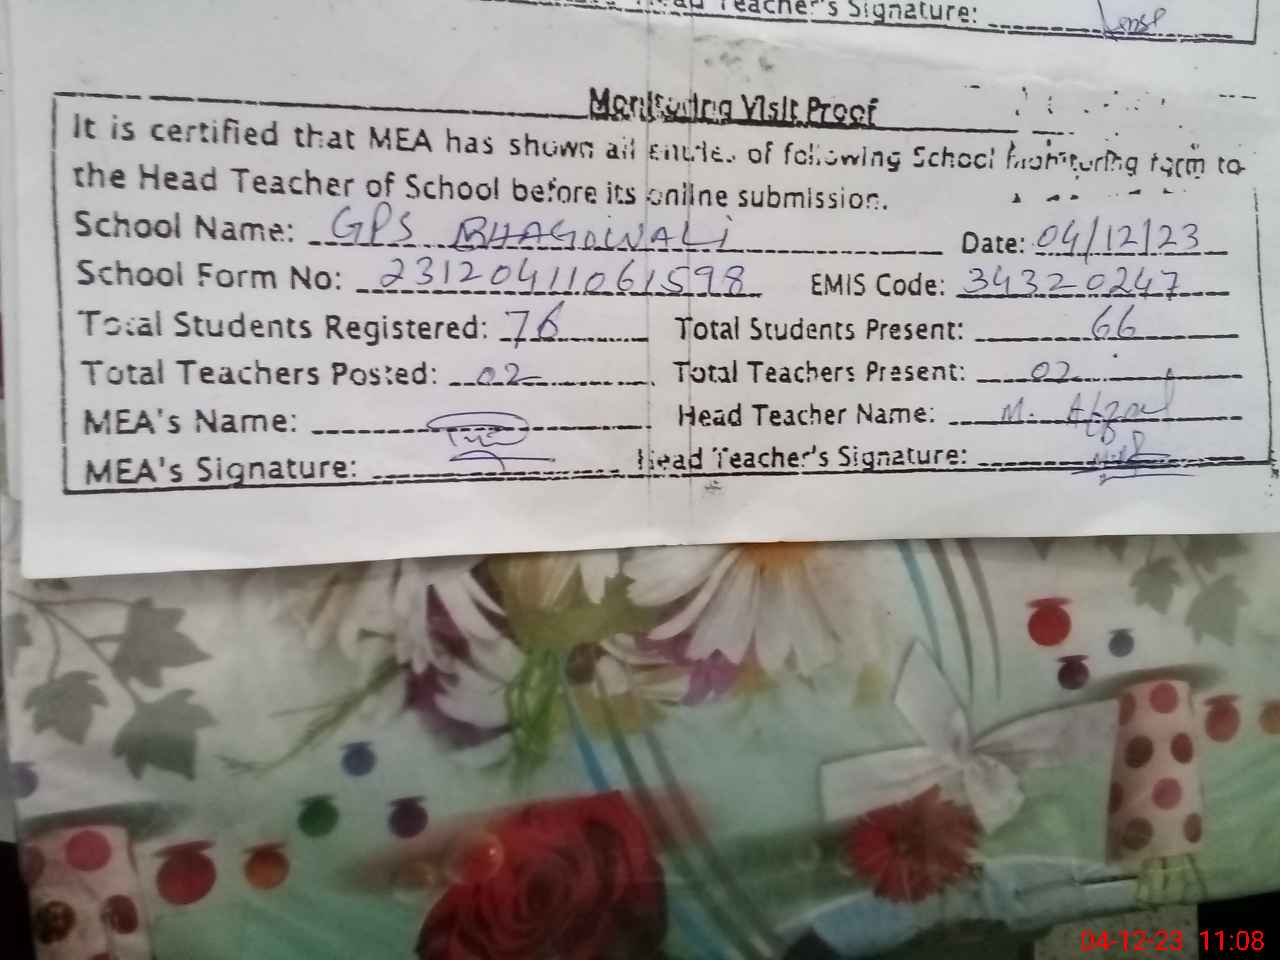 Head Teacher's Signature:
Monitoring Visit Proof
It is certified that MEA has shown all entries of following School Monitoring form to
the Head Teacher of School before its online submission.
School Name: GPS BHAGOWALI Date: 04/12/23
School Form No: 23120411061598 EMIS Code: 34320247
Total Students Registered: 76 Total Students Present: 66
Total Teachers Posted: 02 Total Teachers Present: 02
MEA's Name: Head Teacher Name: M. Afzal
MEA's Signature: Head Teacher's Signature:
04-12-23 11:08